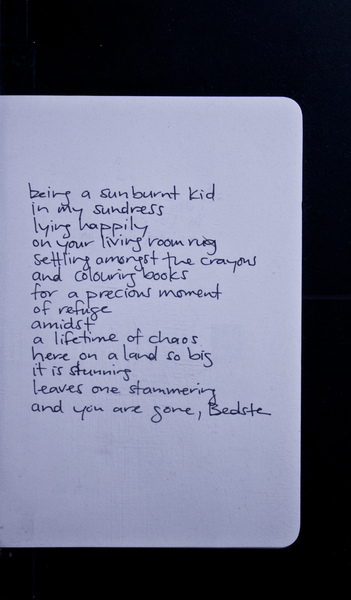 being a sunburnt kid
in my sundress
lying happily
on your living room rug
settling amongst the crayons
and colouring books
for a precious moment
of refuge
amidst
a lifetime of chaos
here on a land so big
it is stunning
leaves one stammering
and you are gone, Bedste